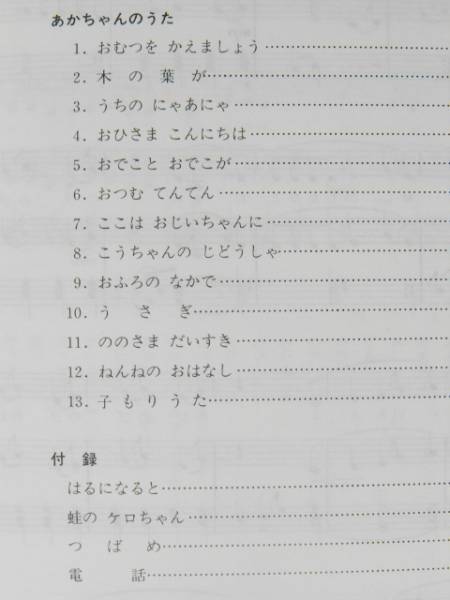 あかちゃんのうた
1. おむつを かえましょう
2. 木の葉が
3. うちの にゃあにゃ
4. おひさま こんにちは
5. おでこと おでこが
6. おつむ てんてん
7. ここは おじいちゃんに
8. こうちゃんの じどうしゃ
9. おふろの なかで
10. うさぎ
11. ののさま だいすき
12. ねんねの おはなし
13. 子もりうた
付録
はるになると
蛙の ケロちゃん
つばめ
電話